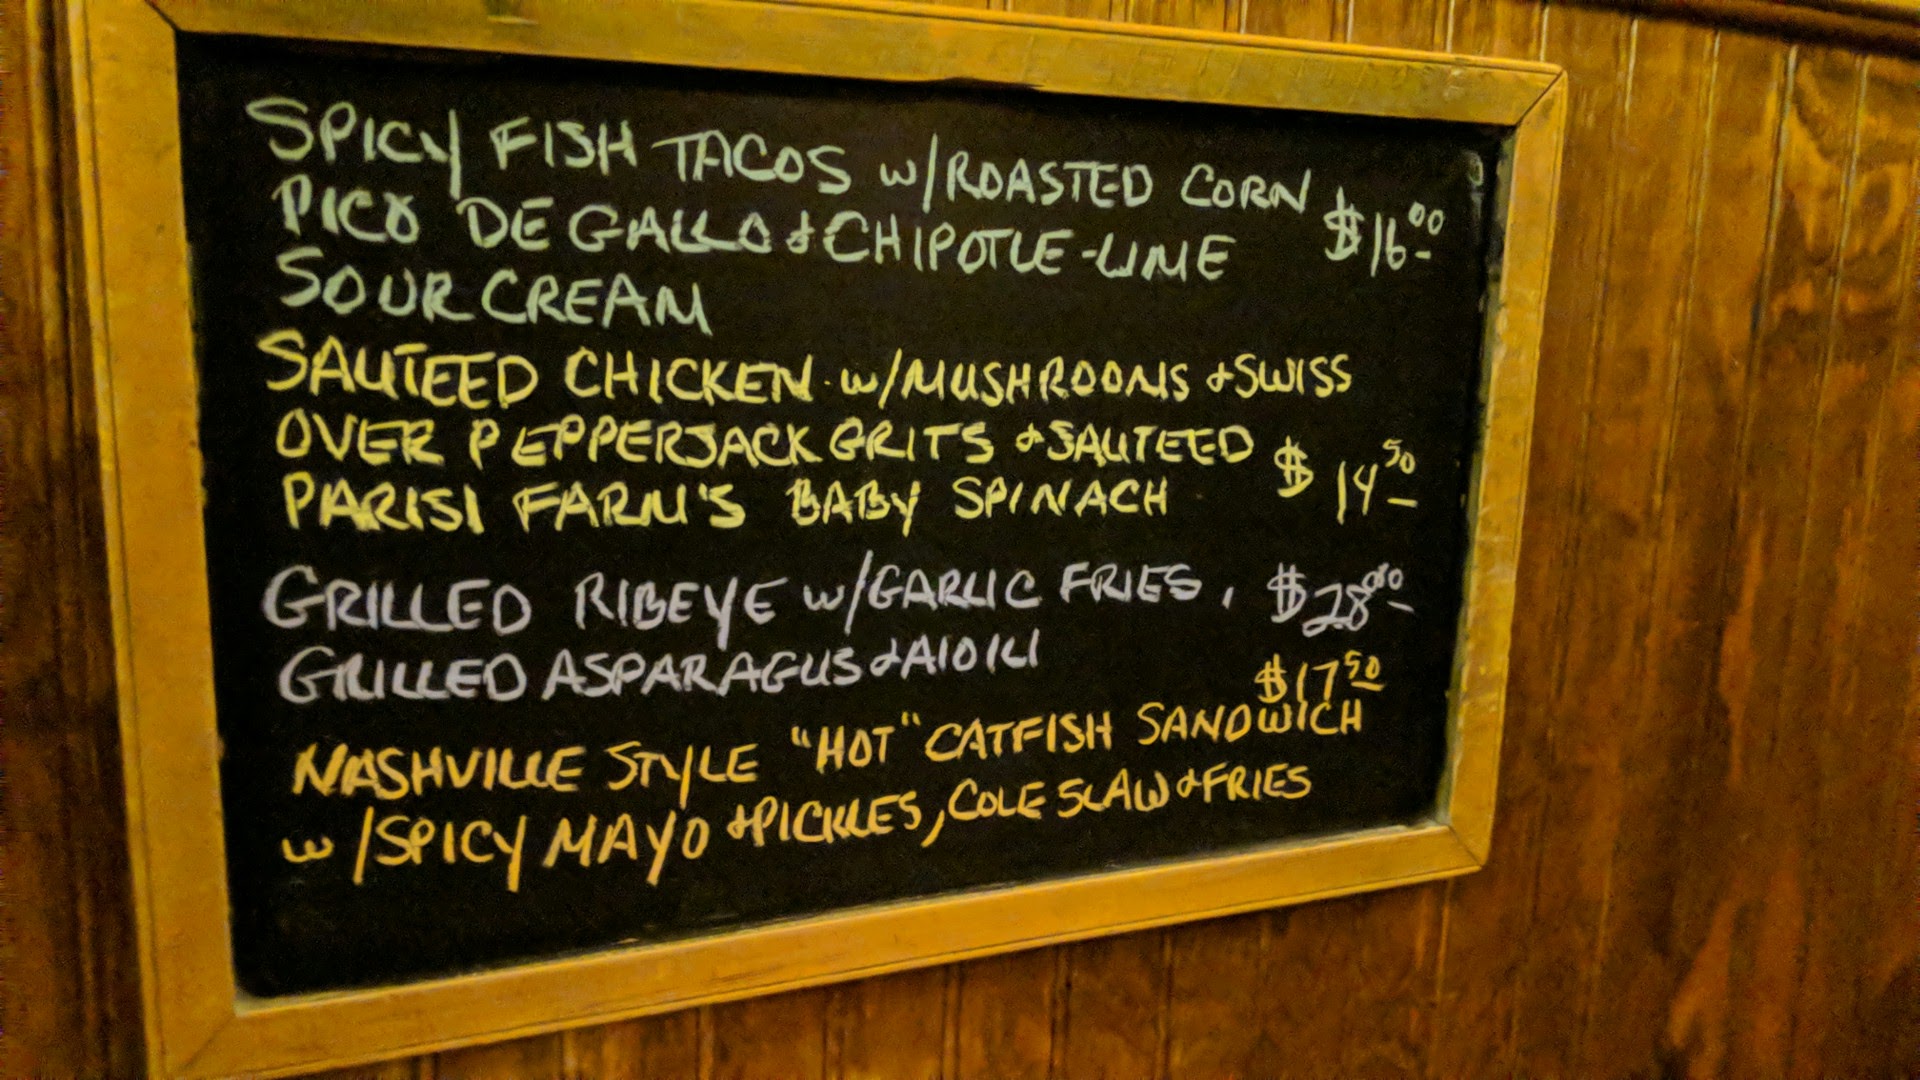 SPICY FISH TACOS w/ROASTED CORN
PICO DE GALLO & CHIPOTLE-LIME $16.00
SOUR CREAM
SAUTEED CHICKEN w/MUSHROOMS & SWISS
OVER PEPPERJACK GRITS & SAUTEED $14.50
PARISI FARM'S BABY SPINACH
GRILLED RIBEYE w/GARLIC FRIES, $28.00
GRILLED ASPARAGUS & AIOILI
$17.50
NASHVILLE STYLE "HOT" CATFISH SANDWICH
w/SPICY MAYO & PICKLES, COLE SLAW & FRIES